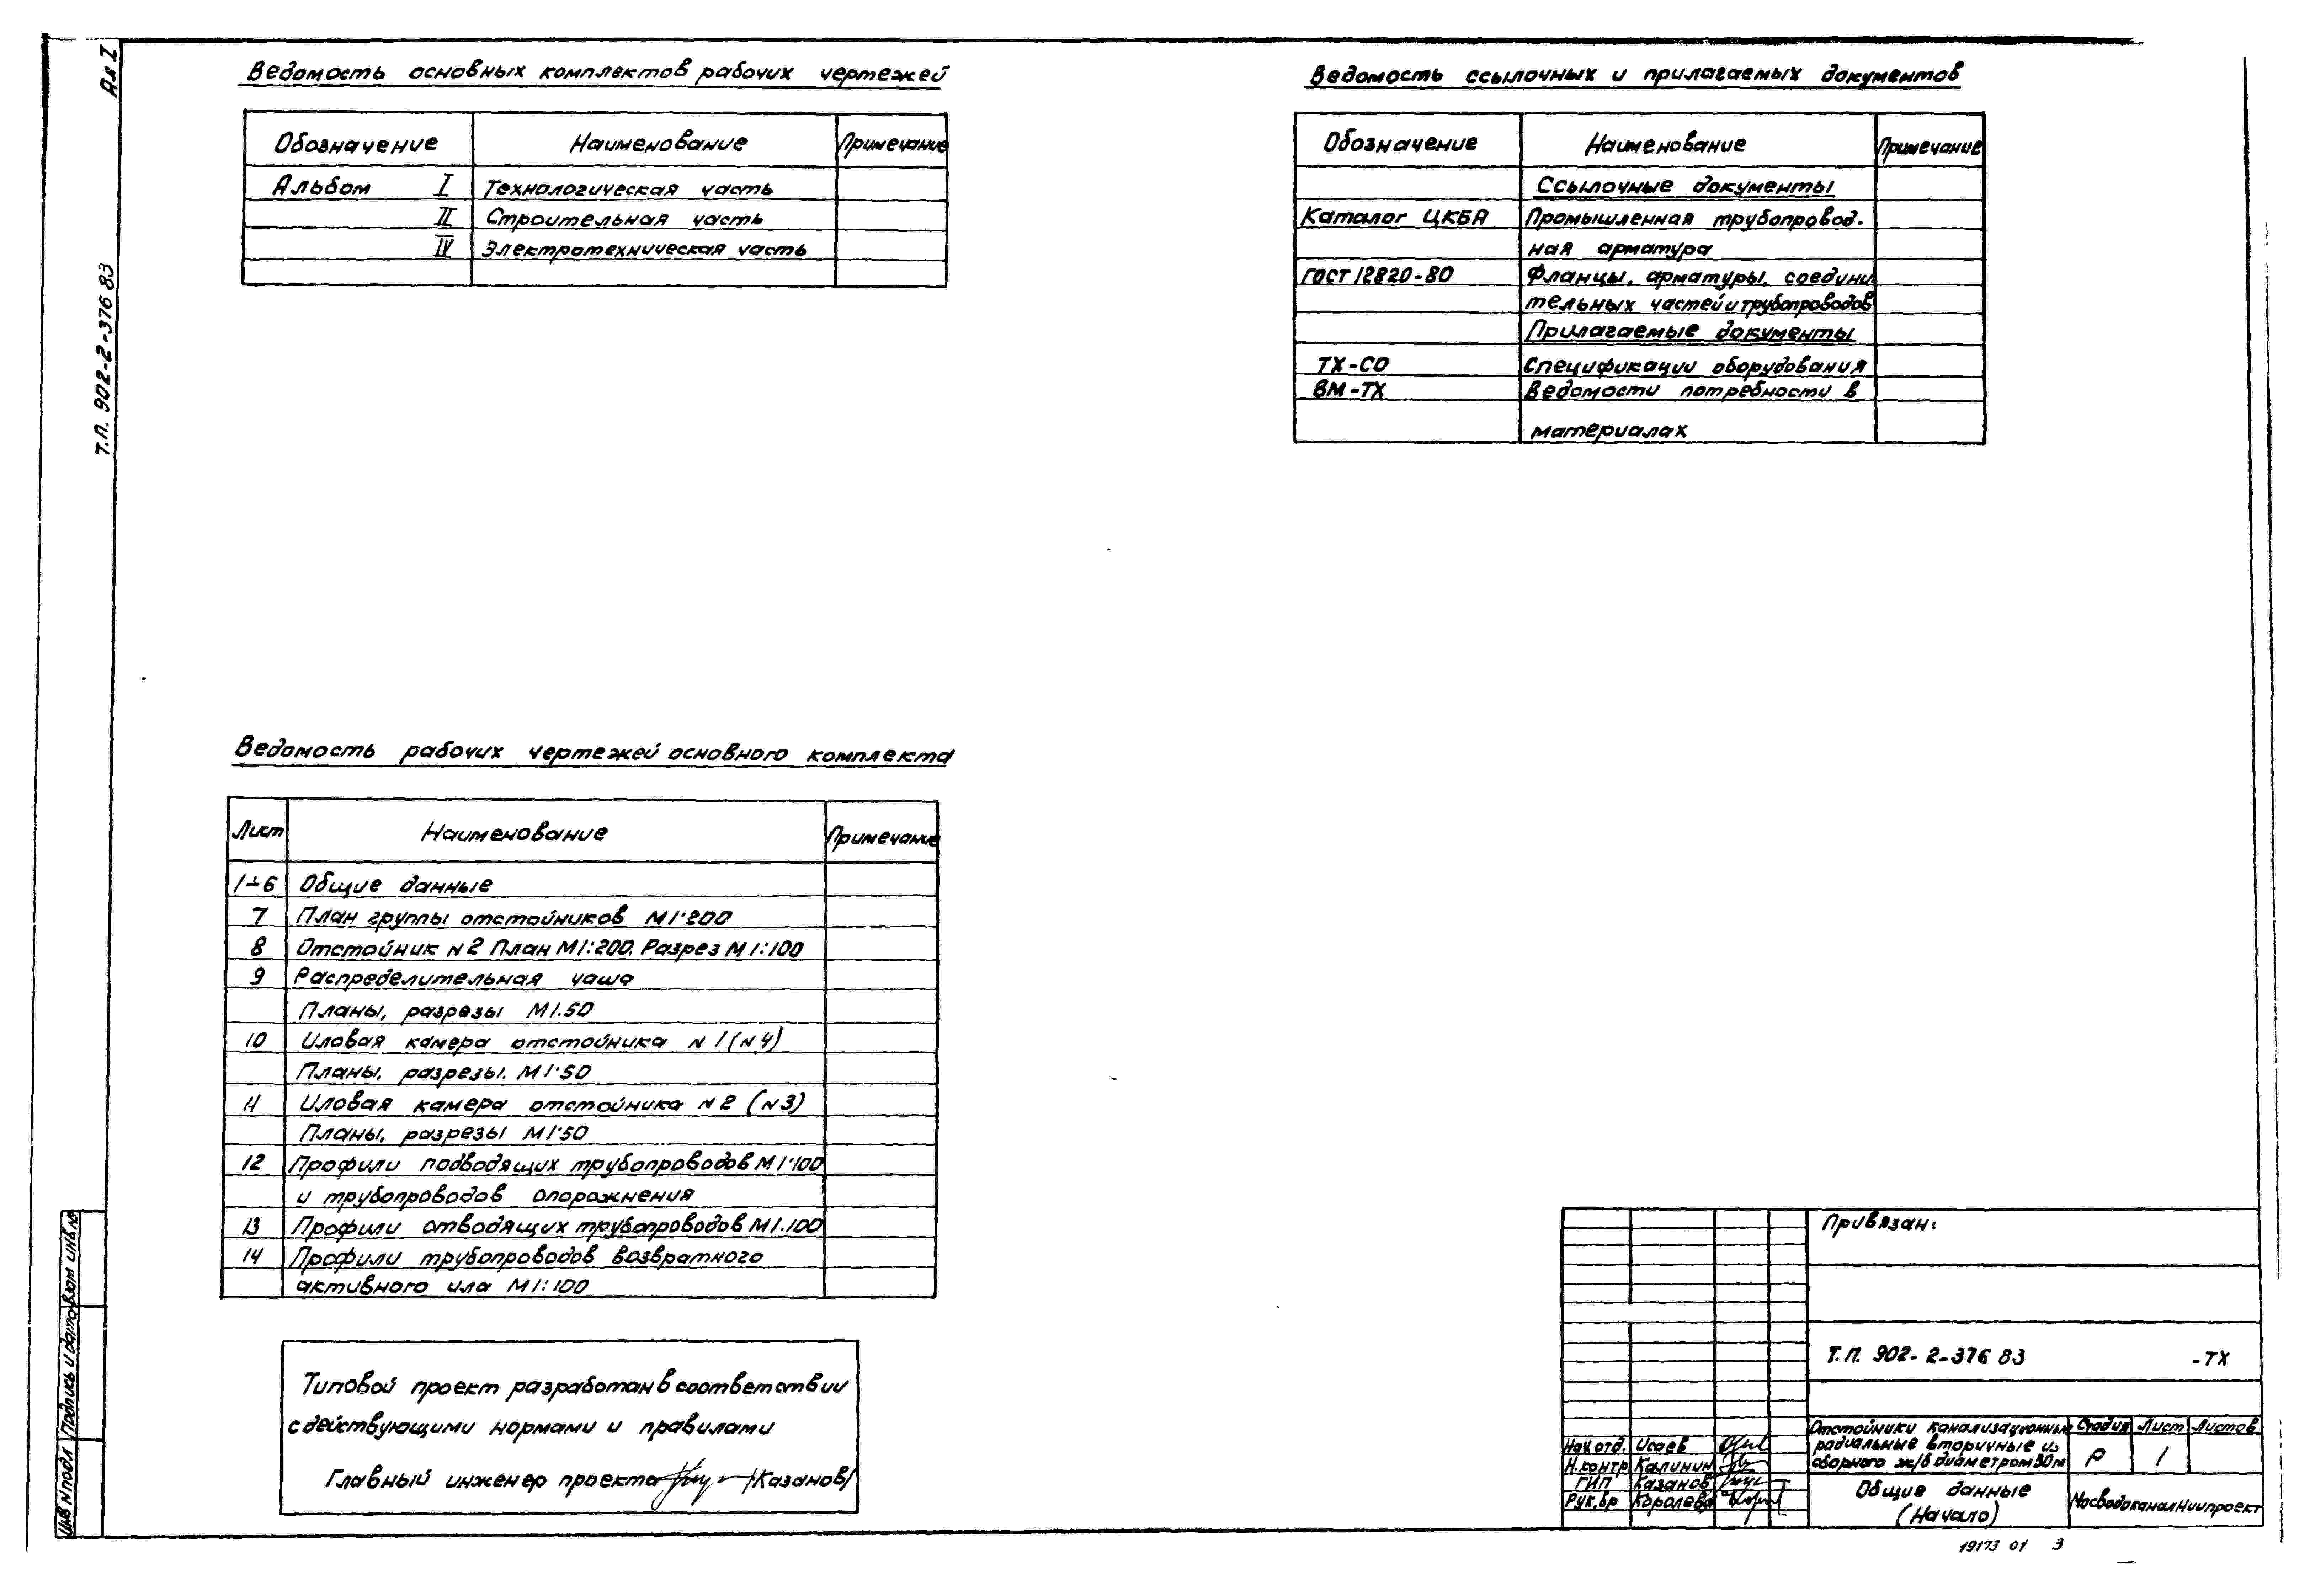 Ал I
Т.П. 902-2-376 83
Ведомость основных комплектов рабочих чертежей
Обозначение Наименование Примечание
Альбом I Технологическая часть
II Строительная часть
IV Электротехническая часть
Ведомость ссылочных и прилагаемых документов
Обозначение Наименование Примечание
Ссылочные документы
Каталог ЦКБА Промышленная трубопровод-
ная арматура
ГОСТ 12820-80 Фланцы, арматуры, соедини
тельных частей и трубопроводов
Прилагаемые документы
ТХ-СО Спецификации оборудования
ВМ-ТХ Ведомости потребности в
материалах
Ведомость рабочих чертежей основного комплекта
Лист Наименование Примечание
1÷6 Общие данные
7 План группы отстойников М 1:200
8 Отстойник N2 План М1:200. Разрез М 1:100
9 Распределительная чаша
Планы, разрезы М1:50
10 Иловая камера отстойника N 1 (N4)
Планы, разрезы. М 1:50
11 Иловая камера отстойника N 2 (N3)
Планы, разрезы М1:50
12 Профили подводящих трубопроводов М 1:100
и трубопроводов опорожнения
13 Профили отводящих трубопроводов М1:100
14 Профили трубопроводов возвратного
активного ила М 1:100
Типовой проект разработан в соответствии
с действующими нормами и правилами
Главный инженер проекта /Казанов/
Привязан:
Т.П. 902-2-376 83 -ТХ
Отстойники канализационные
радиальные вторичные из
сборного ж/б диаметром 30м
Стадия Лист Листов
Р 1
Нач.отд. Исаев
Н.контр. Калинин
ГИП Казанов
Рук.бр Королева
Общие данные
(Начало)
МосводоканалНиипроект
Инв N подл Подпись и дата Взам инв. N
19173 01 3